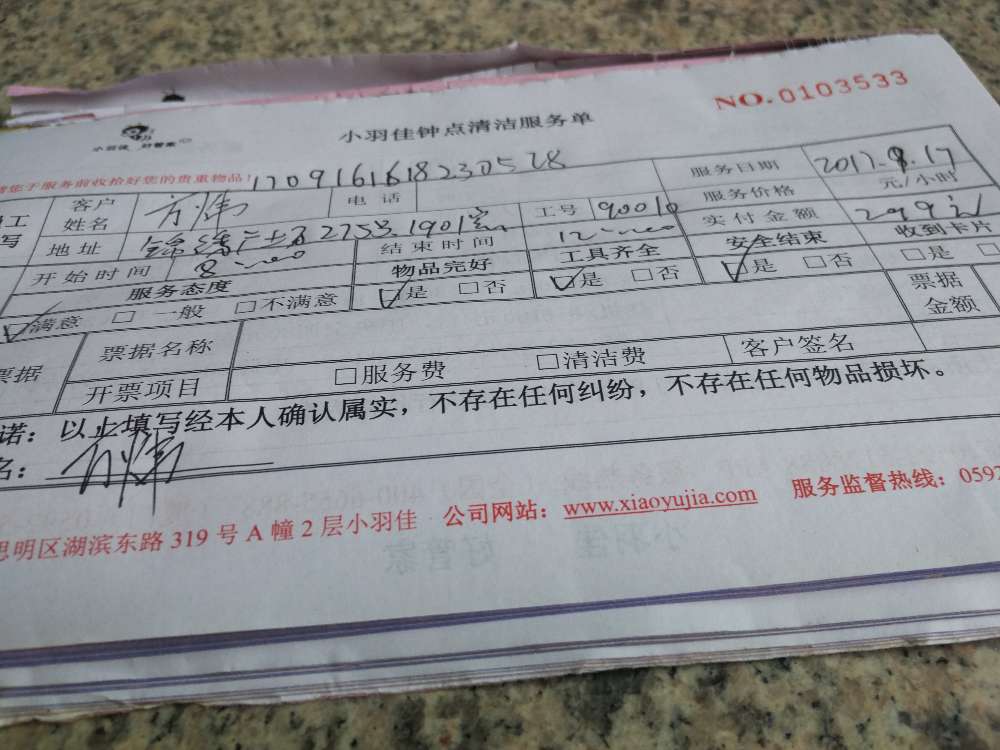 NO.0103533
小羽佳 好管家
小羽佳钟点清洁服务单
您于服务前收拾好您的贵重物品! 1709161618230528
服务日期 2017.9.17
客户姓名 方炜 电话 服务价格 元/小时
地址 2753 1901室 工号 90010 实付金额 299元
开始时间 8:00 结束时间 12:00 安全结束 收到卡片
服务态度 物品完好 工具齐全 ☑是 □否 □是
☑满意 □一般 □不满意 ☑是 □否 ☑是 □否
票据 票据名称 票据金额
开票项目 □服务费 □清洁费 客户签名
诺:以上填写经本人确认属实,不存在任何纠纷,不存在任何物品损坏。
名:方炜
思明区湖滨东路319号A幢2层小羽佳 公司网站:www.xiaoyujia.com 服务监督热线:0592